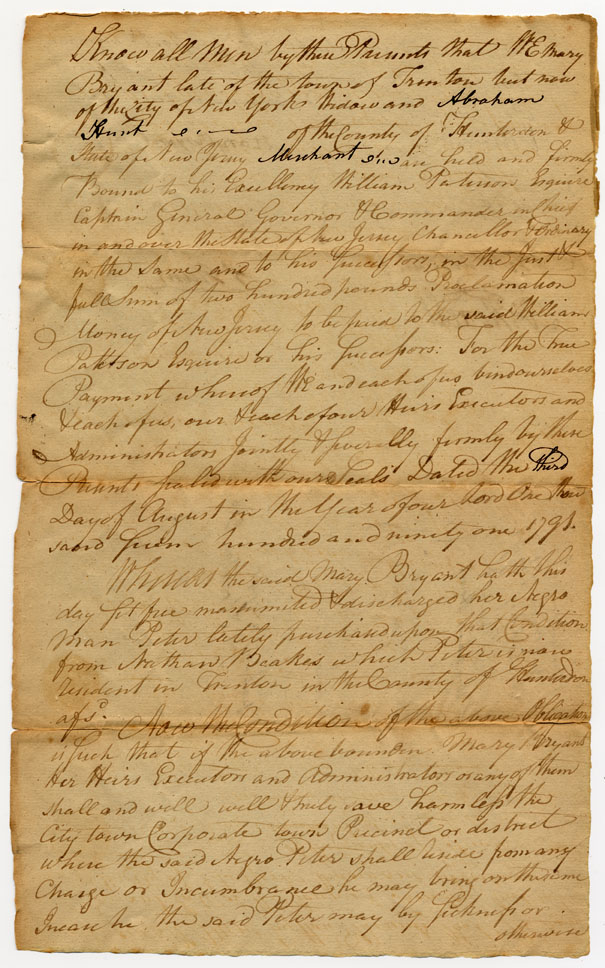 Know all Men by these Presents that WE Mary
Bryant late of the town of Trenton but now
of the City of New York Widow and Abraham
Hunt of the County of Hunterdon &
State of New Jersey Merchant are held and firmly
Bound to his Excellency William Paterson Esquire
Captain General Governor & Commander in Chief
in and over the State of New Jersey Chancellor & Ordinary
in the Same and to his Successors, in the just &
full Sum of two hundred pounds Proclamation
Money of New Jersey to be paid to the said William
Patterson Esquire or his Successors: For the True
Payment whereof WE and each of us bind ourselves
& each of us, our & each of our Heirs Executors and
Administrators Jointly & severally firmly by these
Presents sealed with our Seals Dated the Third
Day of August in the Year of our Lord One thou
sand seven hundred and ninety one 1791.
Whereas the said Mary Bryant hath this
day set free manumited & discharged her Negro
Man Peter lately purchased upon that Condition
from Nathan Beakes which Peter is now
resident in Trenton in the County of Hunterdon
afsd. Now the Condition of the above Obligation
is such that if the above bounden Mary Bryant
Her Heirs Executors and Administrators or any of them
shall and well well & truly save harmless the
City town Corporate town Precinct or district
where the said Negro Peter shall reside from any
Charge or Incumbrance he may bring on the same
In case he the said Peter may by Sickness or
otherwise